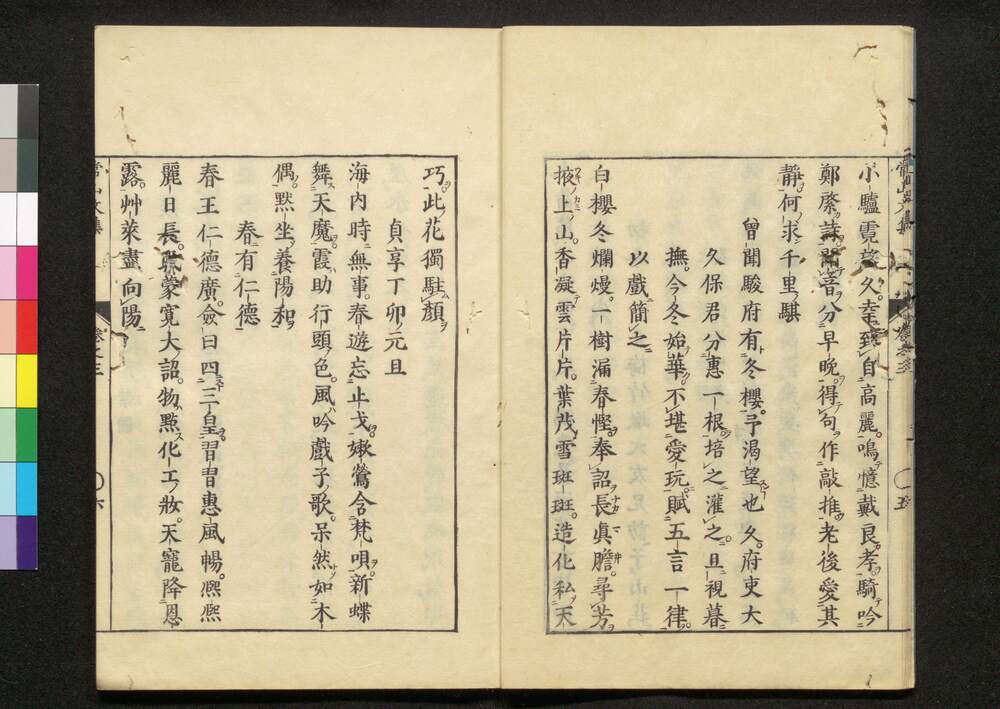 小驢霓望久。牽到自高麗。鳴憶戴良孝。騎吟
鄭綮詩。聞音分早晚。得句作敲推。老後愛其
靜。何求千里騏
曾聞駿府有冬櫻。予渴望也久。府吏大
久保君分惠一根。培之灌之。且視暮
撫。今冬始華。不堪愛玩。賦五言一律。
以戲簡之
白櫻冬爛熳。一樹漏春慳。奉詔長眞膽。尋芳
掖上山。香凝雲片片。葉茂雪斑斑。造化私天
巧。此花獨駐顏
貞享丁卯元旦
海内時無事。春遊忘止戈。嫩鶯含梵唄。新蝶
舞天魔。霞助行頭色。風吟戲子歌。呆然如木
偶。默坐養陽和
春有仁德
春王仁德廣。僉曰四三皇。習習惠風暢。凞凞
麗日長。蒙寬大詔。物點化工妝。天寵降恩
露。艸萊盡向陽
卷之三
六
五